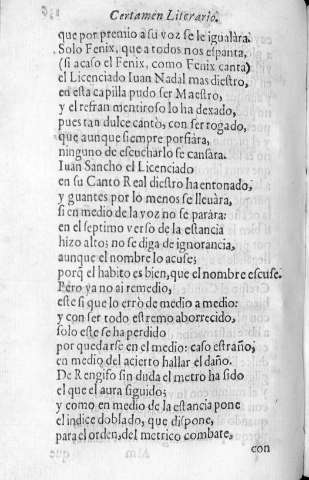 Certamen Literario.
que por premio a su voz se le igualàra.
Solo Fenix, que a todos nos espanta,
(si acaso el Fenix, como Fenix canta)
el Licenciado Iuan Nadal mas diestro,
en esta capilla pudo ser Maestro,
y el refran mentiroso lo ha dexado,
pues tan dulce cantò, con ser rogado,
que aunque siempre porfiàra,
ninguno de escucharlo se cansàra.
Iuan Sancho el Licenciado
en su Canto Real diestro ha entonado,
y guantes por lo menos se lleuàra,
si en medio de la voz no se paràra:
en el septimo verso de la estancia
hizo alto; no se diga de ignorancia,
aunque el nombre lo acuse;
porq̃ el habito es bien, que el nombre escuse.
Pero ya no ai remedio,
este si que lo errò de medio a medio:
y con ser todo estremo aborrecido,
solo este se ha perdido
por quedarse en el medio: caso estraño,
en medio del acierto hallar el daño.
De Rengifo sin duda el metro ha sido
el que el aura siguido;
y como en medio de la estancia pone
el indice doblado, que dispone,
para el orden, del metrico combate,
con